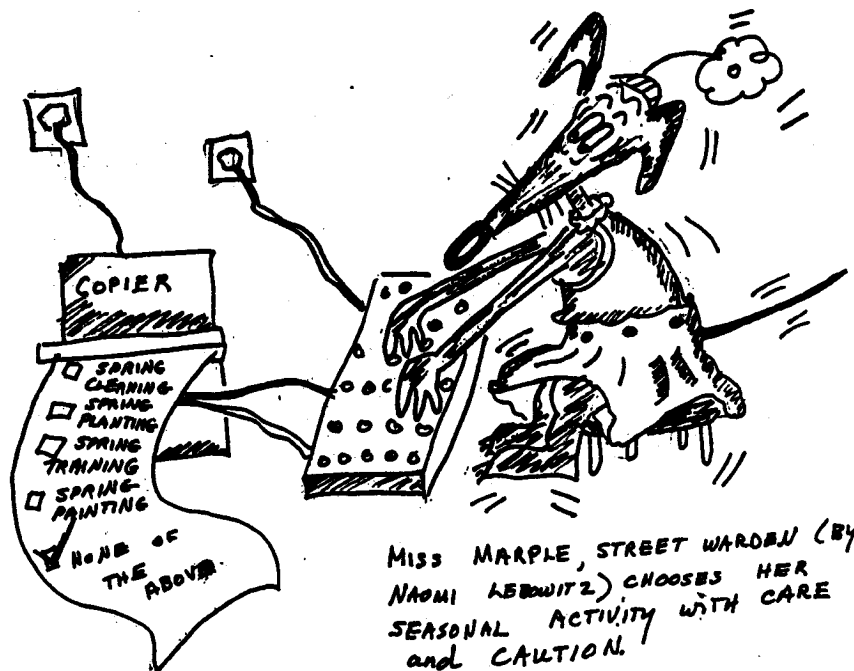 COPIER
SPRING
CLEANING
SPRING
PLANTING
SPRING
TRAINING
SPRING
PAINTING
NONE OF
THE ABOVE
MISS MARPLE, STREET WARDEN (BY
NAOMI LEBOWITZ) CHOOSES HER
SEASONAL ACTIVITY WITH CARE
and CAUTION.